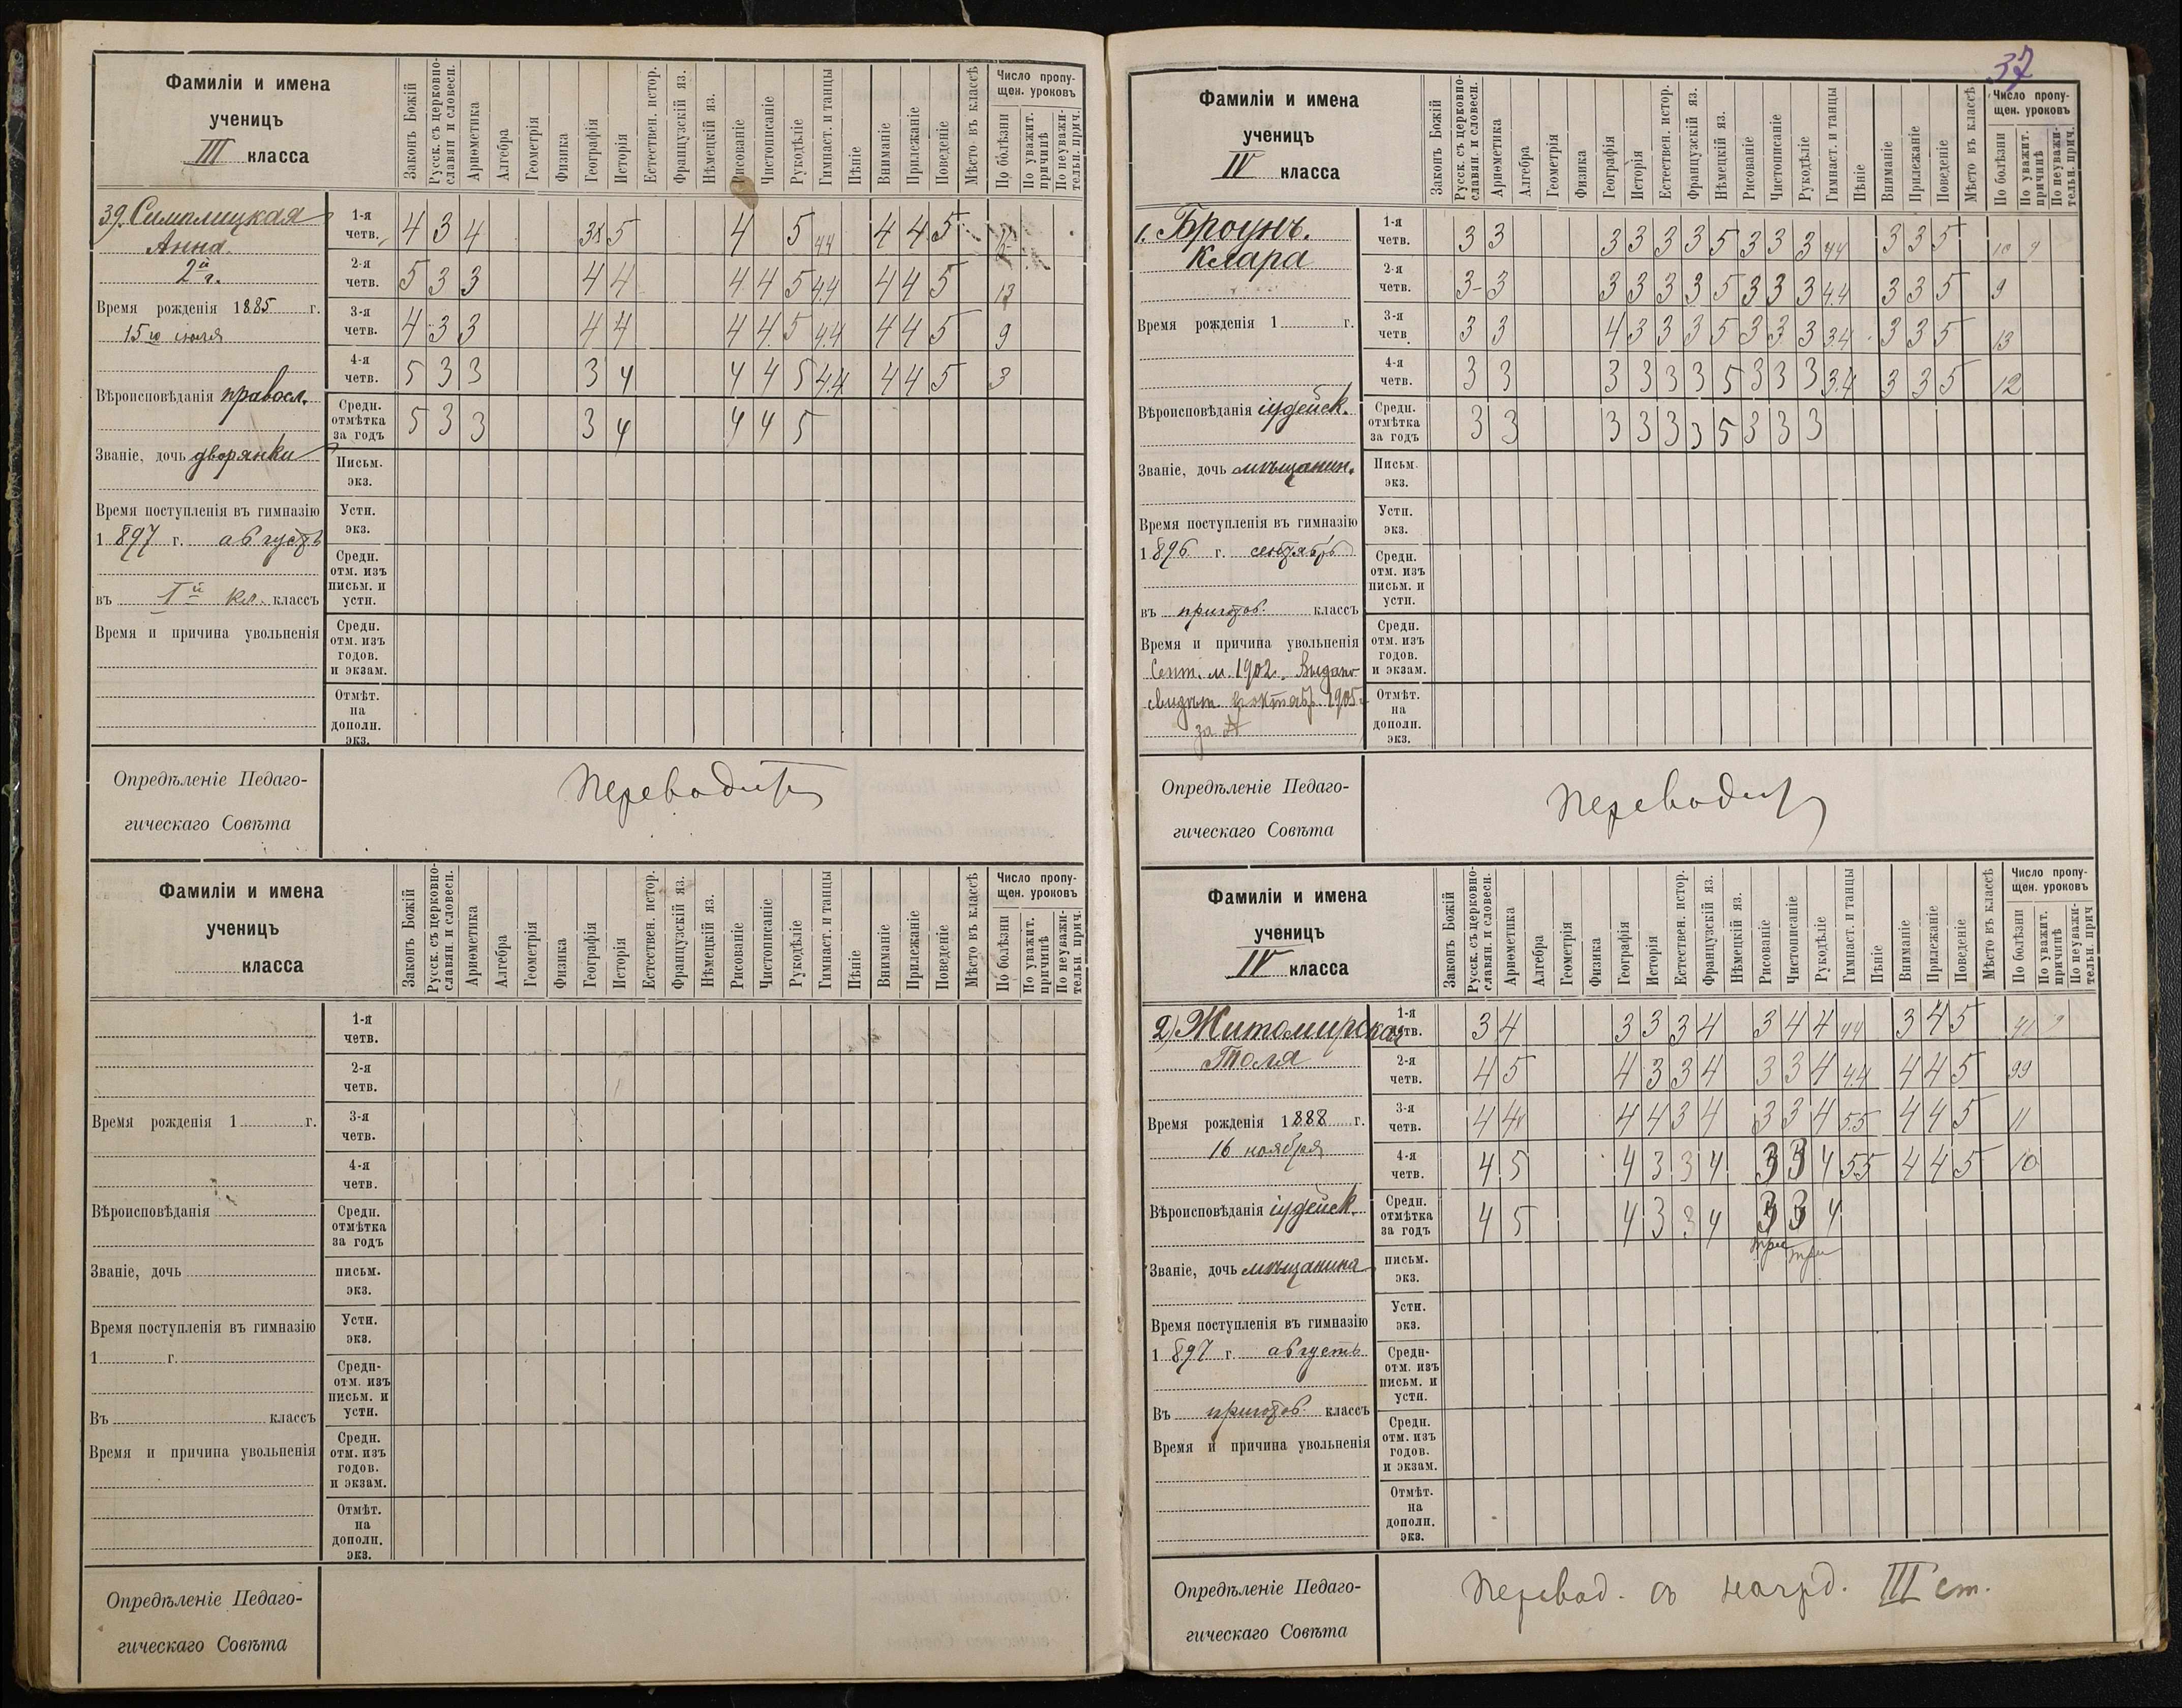 Фамиліи и имена
ученицъ
III класса
Законъ Божій
Русск. съ церковно-
славян. и словесн.
Ариѳметика
Алгебра
Геометрія
Физика
Географія
Исторія
Естествен. истор.
Французскій яз.
Нѣмецкій яз.
Рисованіе
Чистописаніе
Рукодѣліе
Гимнаст. и танцы
Пѣніе
Вниманіе
Прилежаніе
Поведеніе
Мѣсто въ классѣ
Число пропу-
щен. уроковъ
По болѣзни
По уважит.
причинѣ
По неуважи-
тельн. прич.
39. Симплицкая
Анна.
2й г.
Время рожденія 1885 г.
15го іюля
Вѣроисповѣданія правосл.
Званіе, дочь дворянки
Время поступленія въ гимназію
1897 г. августъ
въ Iй кл. классъ
Время и причина увольненія
1-я четв. 4 3 4 5 4 5 44 4 4 5
2-я четв. 5 3 3 4 4 4 4 5 4.4 4 4 5
3-я четв. 4 3 3 4 4 4 4 5 4.4 4 4 5 9
4-я четв. 5 3 3 3 4 4 4 5 4.4 4 4 5 3
Средн. отмѣтка за годъ 5 3 3 3 4 4 4 5
Письм.
экз.
Устн.
экз.
Средн.
отм. изъ
письм. и
устн.
Средн.
отм. изъ
годов.
и экзам.
Отмѣт.
на
дополн.
экз.
Опредѣленіе Педаго-
гическаго Совѣта
Переводит
Фамиліи и имена
ученицъ
класса
Законъ Божій
Русск. съ церковно-
славян. и словесн.
Ариѳметика
Алгебра
Геометрія
Физика
Географія
Исторія
Естествен. истор.
Французскій яз.
Нѣмецкій яз.
Рисованіе
Чистописаніе
Рукодѣліе
Гимнаст. и танцы
Пѣніе
Вниманіе
Прилежаніе
Поведеніе
Мѣсто въ классѣ
Число пропу-
щен. уроковъ
По болѣзни
По уважит.
причинѣ
По неуважи-
тельн. прич.
Время рожденія 1 г.
Вѣроисповѣданія
Званіе, дочь
Время поступленія въ гимназію
1 г.
Въ классъ
Время и причина увольненія
1-я
четв.
2-я
четв.
3-я
четв.
4-я
четв.
Средн.
отмѣтка
за годъ
письм.
экз.
Устн.
экз.
Средн-
отм. изъ
письм. и
устн.
Средн.
отм. изъ
годов.
и экзам.
Отмѣт.
на
дополн.
экз.
Опредѣленіе Педаго-
гическаго Совѣта
37
Фамиліи и имена
ученицъ
IV класса
Законъ Божій
Русск. съ церковно-
славян. и словесн.
Ариѳметика
Алгебра
Геометрія
Физика
Географія
Исторія
Естествен. истор.
Французскій яз.
Нѣмецкій яз.
Рисованіе
Чистописаніе
Рукодѣліе
Гимнаст. и танцы
Пѣніе
Вниманіе
Прилежаніе
Поведеніе
Мѣсто въ классѣ
Число пропу-
щен. уроковъ
По болѣзни
По уважит.
причинѣ
По неуважи-
тельн. прич.
1. Броунъ.
Клара
Время рожденія 1 г.
Вѣроисповѣданія іудейск.
Званіе, дочь мѣщанин.
Время поступленія въ гимназію
1896 г. сентябрь
въ пригот. классъ
Время и причина увольненія
Сент. м. 1902. Выдано
свидѣт. въ октябр. 1905 г.
1-я четв. 3 3 3 3 3 3 5 3 3 3 44 3 3 5 10
2-я четв. 3- 3 3 3 3 3 5 3 3 3 4.4 3 3 5 9
3-я четв. 3 3 4 3 3 3 5 3 3 3 3.4 3 3 5 13
4-я четв. 3 3 3 3 3 3 5 3 3 3 3.4 3 3 5 12
Средн. отмѣтка за годъ 3 3 3 3 3 3 5 3 3 3
Письм.
экз.
Устн.
экз.
Средн.
отм. изъ
письм. и
устн.
Средн.
отм. изъ
годов.
и экзам.
Отмѣт.
на
дополн.
экз.
Опредѣленіе Педаго-
гическаго Совѣта
Переводит
Фамиліи и имена
ученицъ
IV класса
Законъ Божій
Русск. съ церковно-
славян. и словесн.
Ариѳметика
Алгебра
Геометрія
Физика
Географія
Исторія
Естествен. истор.
Французскій яз.
Нѣмецкій яз.
Рисованіе
Чистописаніе
Рукодѣліе
Гимнаст. и танцы
Пѣніе
Вниманіе
Прилежаніе
Поведеніе
Мѣсто въ классѣ
Число пропу-
щен. уроковъ
По болѣзни
По уважит.
причинѣ
По неуважи-
тельн. прич
2) Житомирская
Время рожденія 1888 г.
16 ноября
Вѣроисповѣданія іудейск.
Званіе, дочь мѣщанина
Время поступленія въ гимназію
1897 г. августъ
Въ пригот. классъ
Время и причина увольненія
1-я четв. 3 4 3 3 3 4 3 4 4 44 3 4 5
2-я четв. 4 5 4 3 3 4 3 3 4 4.4 4 4 5 99
3-я четв. 4 4 4 4 3 4 3 3 4 5.5 4 4 5 11
4-я четв. 4 5 4 3 3 4 3 3 4 5.5 4 4 5 10
Средн. отмѣтка за годъ 4 5 4 3 3 4 3 3 4
три три
письм.
экз.
Устн.
экз.
Средн-
отм. изъ
письм. и
устн.
Средн.
отм. изъ
годов.
и экзам.
Отмѣт.
на
дополн.
экз.
Опредѣленіе Педаго-
гическаго Совѣта
Перевод. съ нагрд. III ст.